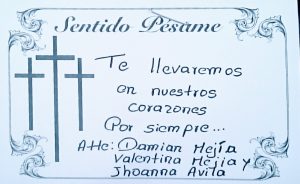 Sentido Pésame
Te llevaremos
en nuestros
corazones
Por siempre...
Atte: Damian Mejía
Valentina Mejia y
Jhoanna Avila